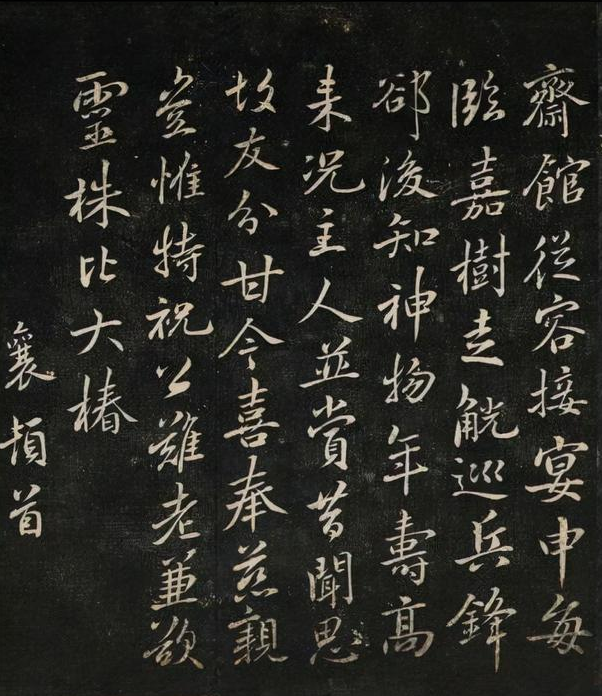 齋館從容接宴申每
臨嘉樹走觥巡兵鋒
卻後知神物年壽高
来况主人並賞昔聞思
故友分甘今喜奉慈親
豈惟特祝公難老兼欲
靈株比大椿
襄頓首